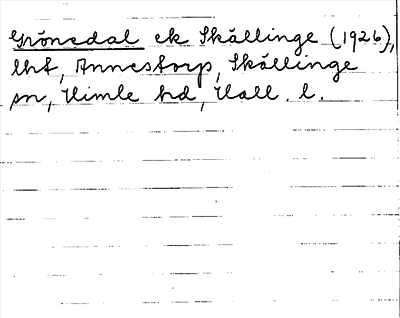 Grönedal ek Skällinge (1926),
lht, Annestorp, Skällinge
sn, Himle hd, Hall. l.